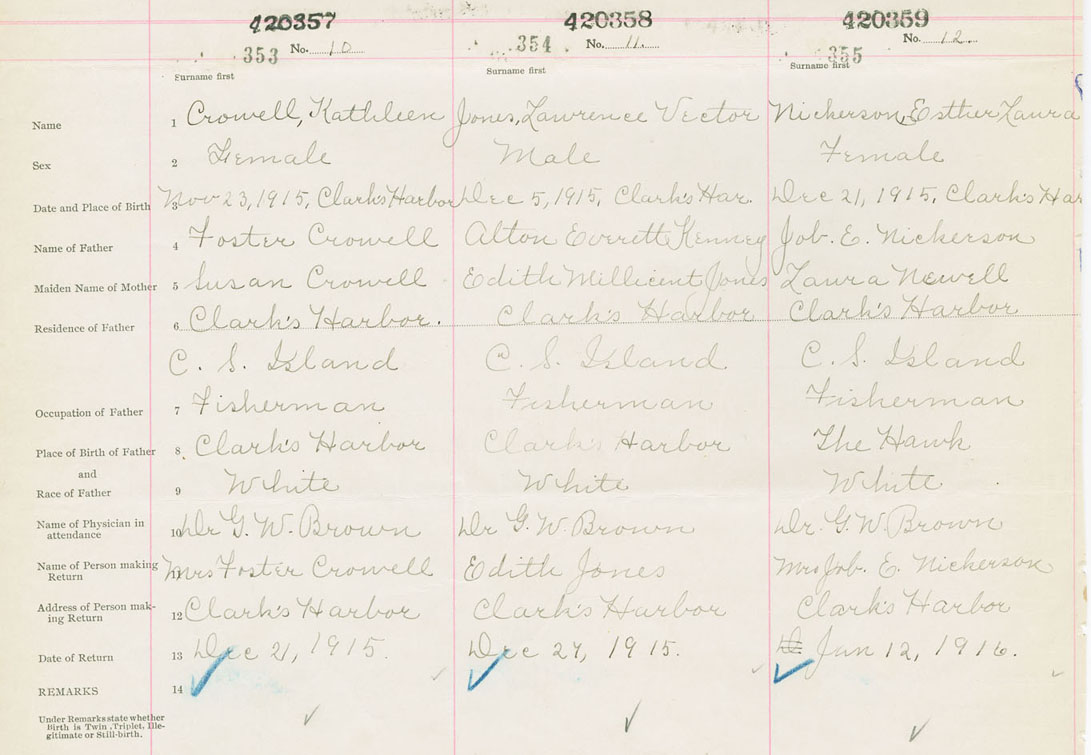 420357 420358 420359
353 No. 10 354 No. 11. 355 No. 12.
Surname first Surname first Surname first
Name 1 Crowell, Kathleen Jones, Lawrence Vector Nickerson, Esther Laura
Sex 2 Female Male Female
Date and Place of Birth 3 Nov 23, 1915, Clark's Harbor Dec 5, 1915, Clark's Har. Dec 21, 1915, Clark's Har
Name of Father 4 Foster Crowell Alton Everett Kenney Job. E. Nickerson
Maiden Name of Mother 5 Susan Crowell Edith Millicent Jones Laura Newell
Residence of Father 6 Clark's Harbor. Clark's Harbor Clark's Harbor
C. S. Island C. S. Island C. S. Island
Occupation of Father 7 Fisherman Fisherman Fisherman
Place of Birth of Father 8 Clark's Harbor Clark's Harbor The Hawk
and
Race of Father 9 White White White
Name of Physician in
attendance 10 Dr G. W. Brown Dr G. W. Brown Dr. G. W. Brown
Name of Person making
Return 11 Mrs Foster Crowell Edith Jones Mrs Job. E. Nickerson
Address of Person mak-
ing Return 12 Clark's Harbor Clark's Harbor Clark's Harbor
Date of Return 13 Dec 21, 1915. Dec 27, 1915. Jun 12, 1916.
REMARKS 14
Under Remarks state whether
Birth is Twin, Triplet, Ille-
gitimate or Still-birth.